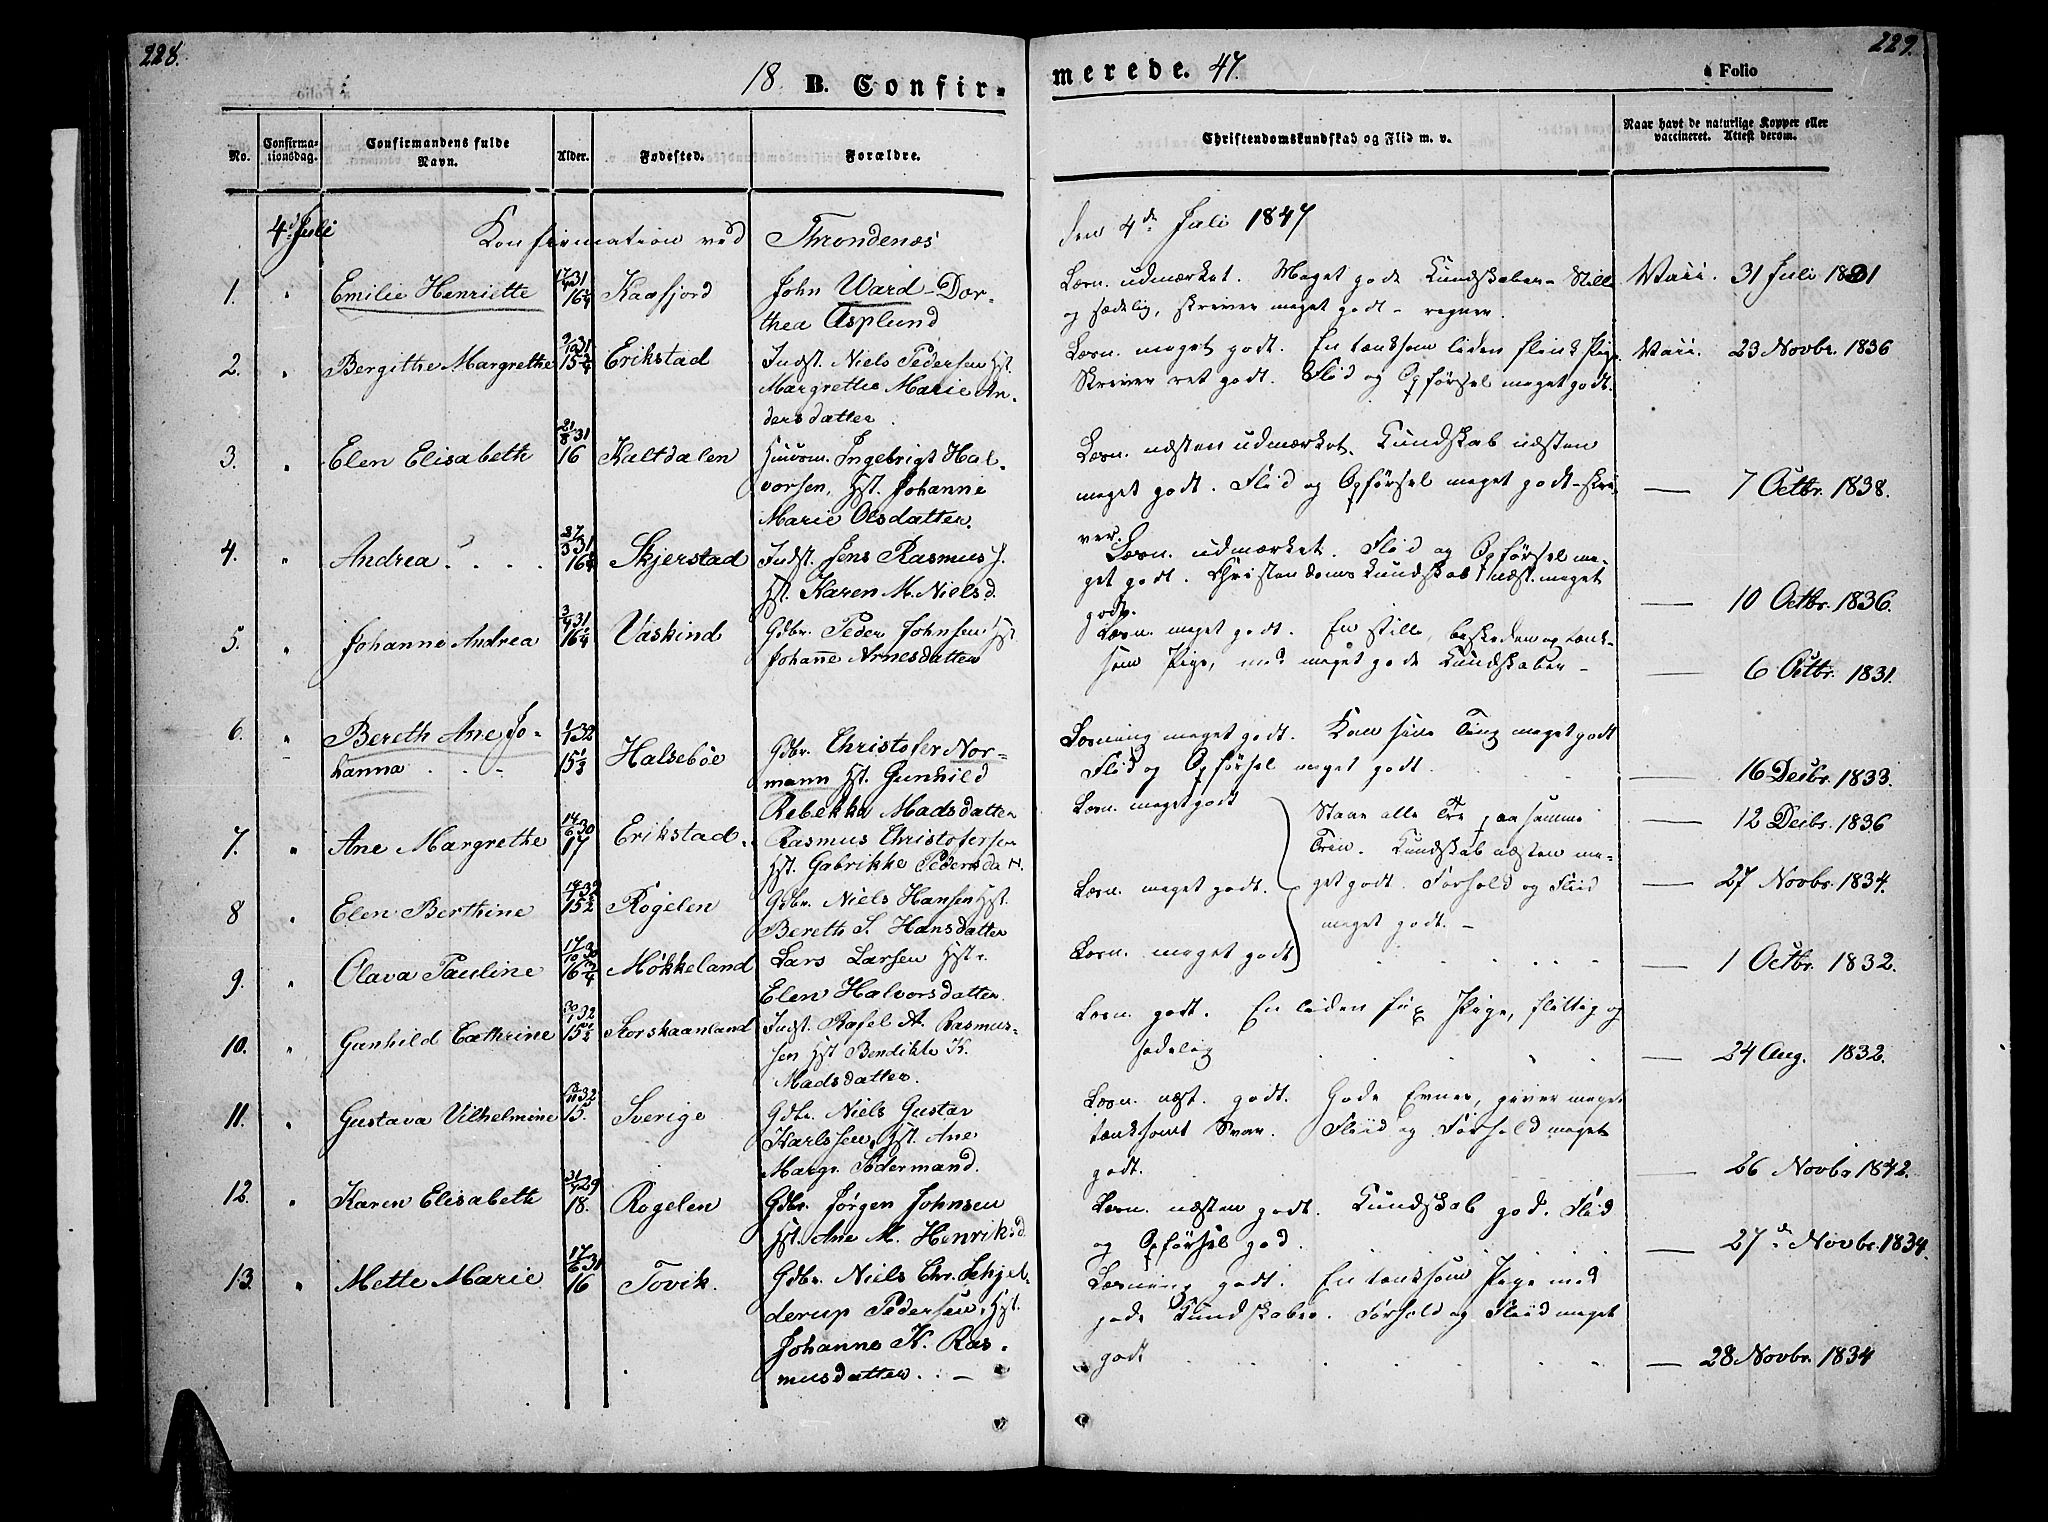 228.
229.
18 B. Confir-
merede. 47.
Folio
No.
Confirma-
tionsdag.
Confirmandens fulde
Navn.
Alder.
Fødested.
Forældre.
Christendomskundskab og Flid m. v.
Naar havt de naturlige Kopper eller
vaccineret. Attest derom.
4d Juli
Konfirmation ved Throndenæs
den 4de Juli 1847
1. " Emilie Henriette 16 Kaafjord John Ward - Dor-
thea Asplund
Læsn. udmærket. Meget gode Kundskaber - Stille
og sædelig, skriver meget godt - regner.
Vacc. 31 Juli 1831
2. " Bergithe Margrethe 15 Erikstad Indst. Niels Pedersen Hst.
Margrethe Marie An-
dersdatter.
Læsn. meget godt. En tænksom liden flink Pige
Skriver ret godt. Flid og Opførsel meget godt.
Vacc. 23 Novbr. 1836
3. " Elen Elisabeth 21/8 31 16 Kaltdalen Huusm. Ingebrigt Hal-
vorsen, Hst. Johanne
Marie Olsdatter.
Læsn. næsten udmærket. Kundskab næsten
meget godt. Flid og Opførsel meget godt - skri-
ver.
— 7 Octbr. 1838.
4. " Andrea . . . . 27/3 31 16 Skjerstad Indst. Jens Rasmus S.
Hst. Karen M. Nielsd.
Læsn. udmærket. Flid og Opførsel me-
get godt. Christendoms Kundskab næst. meget
godt.
— 10 Octbr. 1836.
5. " Johanne Andrea 3/4 31 16 1/4 Vaskind Gdbr. Peder Johnsen, Hst.
Johanne Arnesdatter
Læsn. meget godt. En stille, beskeden og tænk-
som Pige, med meget gode Kundskaber -
— 6 Octbr. 1831.
6. " Bereth Ane Jo-
hanna . . . 1/1 32 15 1/2 Halsebøe Gdbr. Christofer Nor-
mann Hst. Gunhild
Rebekka Madsdatter
Læsning meget godt. Kan sine Ting meget godt
Flid og Opførsel meget godt.
— 16 Decbr. 1833.
7. " Ane Margrethe 14/6 30 17 Erikstad. Rasmus Christofersen
Hst. Gabrikke Pedersdatt.
Læsn. meget godt
Staar alle Tre paa samme
Trin. Kundskab næsten me-
get godt. Forhold og Fliid
meget godt. -
— 12 Decbr. 1836
8 " Elen Berthine 15 1/2 Røgelen Gdbr. Niels Hansen Hst.
Bereth S. Hansdatter
Læsn. meget godt.
— 27 Novbr. 1834.
9. " Olava Pauline 17/10 30 16 3/4 Møkkeland Lars Larsen Hst.
Elen Halvorsdatter.
Læsn. meget godt
— 1 Octbr. 1832.
10. " Gunhild Cathrine 30/1 32 15 1/2 Storskaanland Indst. Rafel A. Rasmus-
sen Hst Bendikte K.
Madsdatter.
Læsn. godt. En liden Pige, flittig og
sædelig
— 24 Aug. 1832.
11. " Gustava Vilhelmine 15. Sverige Gdbr. Niels Gustav
Karlssen, Hst. Ane
Margr. Södermand.
Læsn. næst. godt. Gode Evner, giver meget
tænksomt Svar. Fliid og Forhold meget
godt.
— 26 Novbr 1842.
12. " Karen Elisabeth 18. Røgelen Gdbr. Jørgen Johnsen
Hst. Ane M. Henriksd.
Læsn. næsten godt. Kundskab god. Flid
og Opførsel god.
— 27de Novbr. 1834.
13. " Mette Marie 17/6 31 16 Tovik. Gdbr. Niels Chr. Schjel-
derup Pedersen, Hst.
Johanne K. Ras-
musdatter. . -
Læsning godt. En tænksom Pige med
gode Kundskaber. Forhold og Fliid meget
godt
— 28 Novbr. 1834